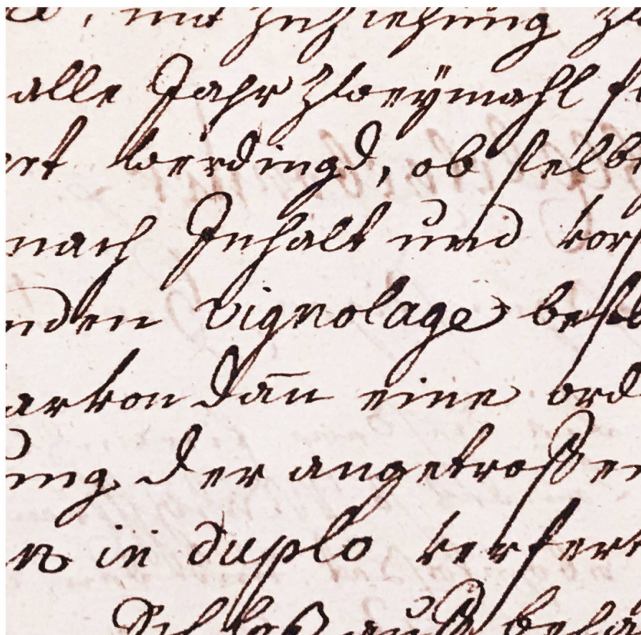 mit Zuziehung
alle Jahr Zweÿmahl
werdingd, ob selb
nach Inhalt und vor
nden vignolage best
arvon dan̄ eine ord
ung der angetroffen
in duplo verfert
Schloß auß behä